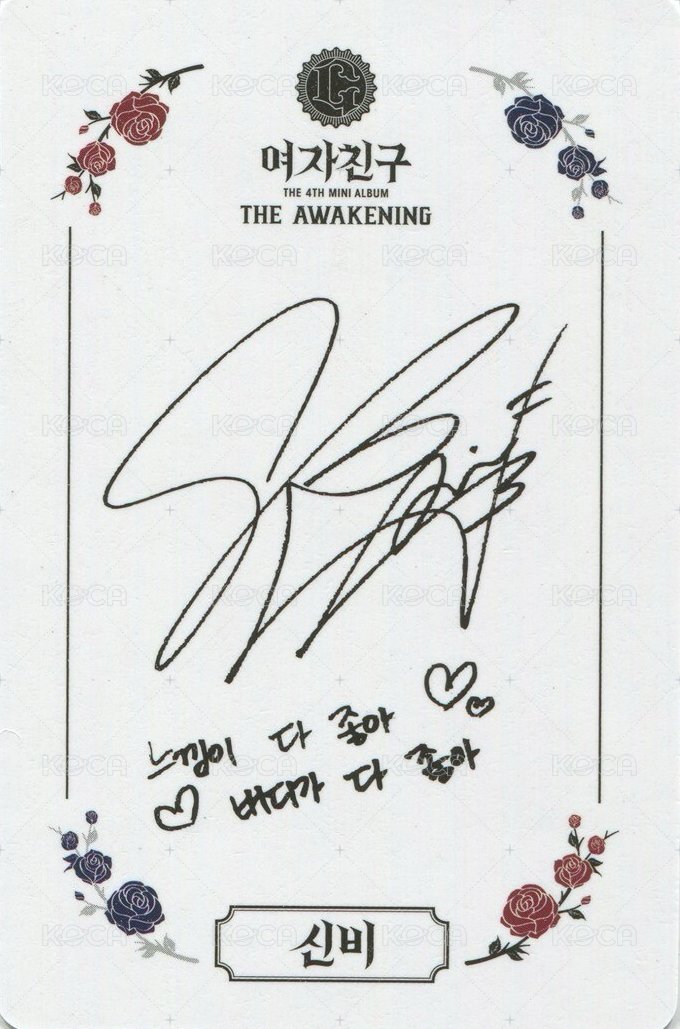 여자친구
THE 4TH MINI ALBUM
THE AWAKENING
느낌이 다 좋아
버디가 다 좋아
신비